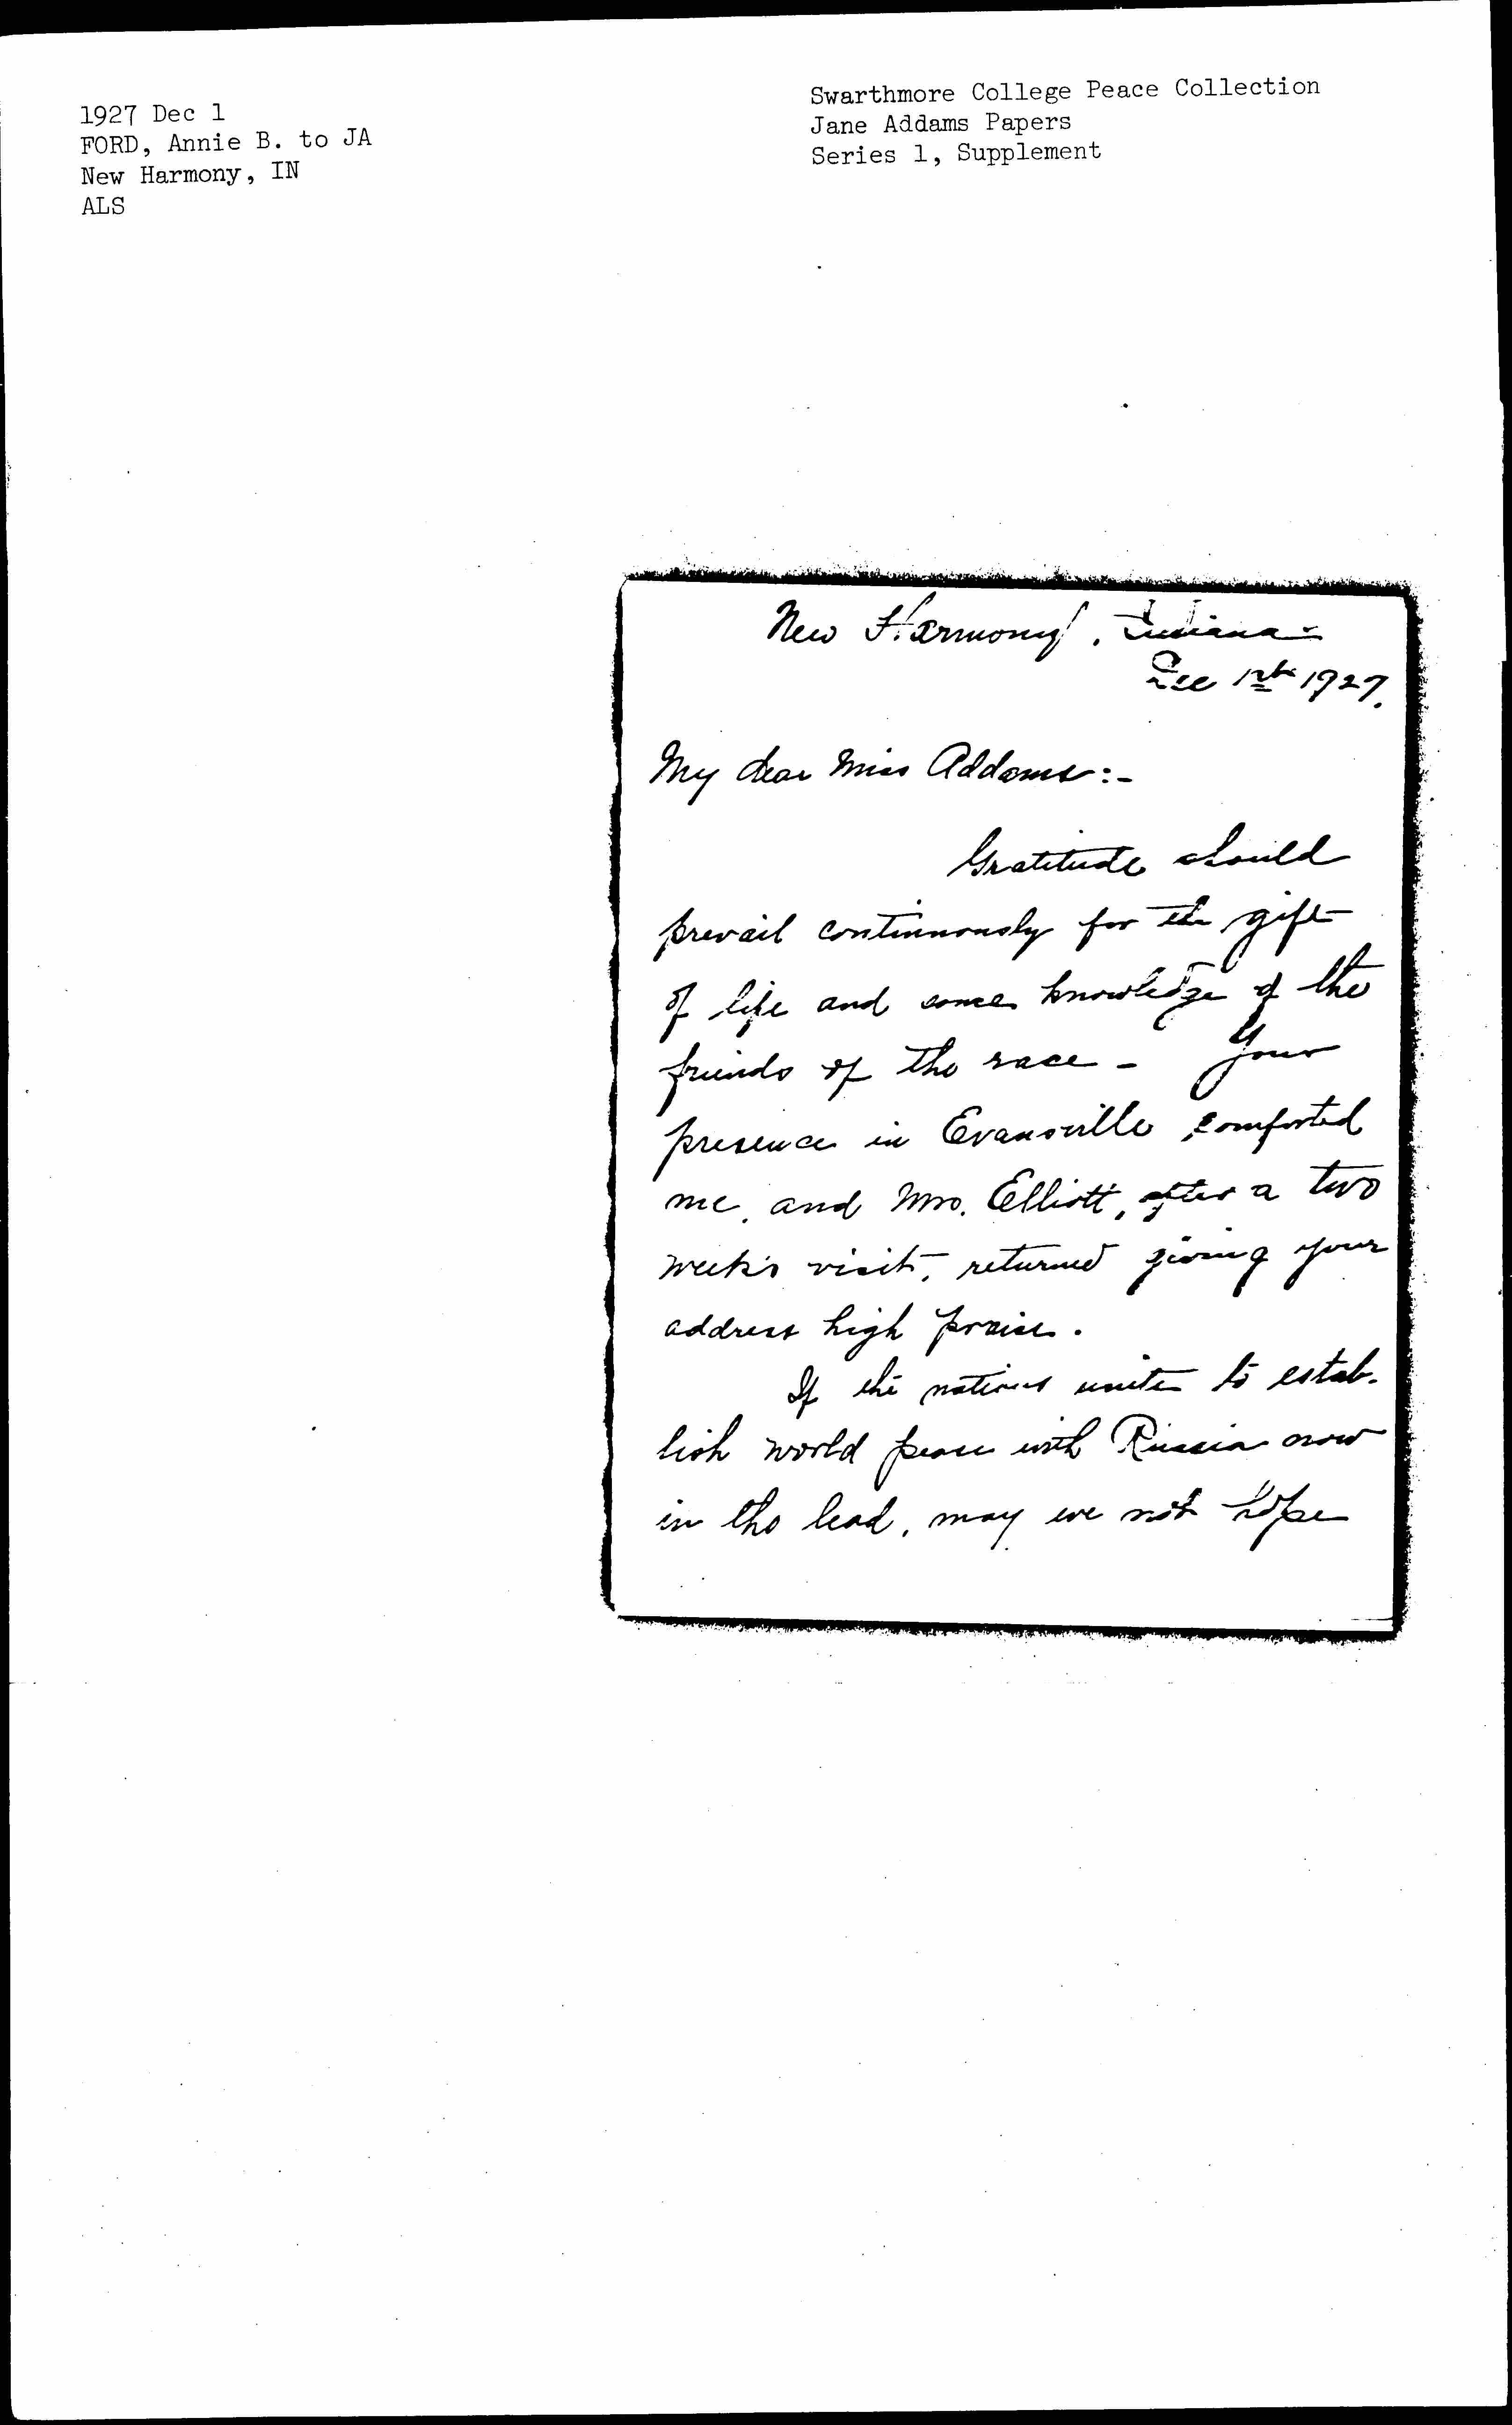 1927 Dec 1
FORD, Annie B. to JA
New Harmony, IN
ALS
Swarthmore College Peace Collection
Jane Addams Papers
Series 1, Supplement
New Harmony, Indiana -
Dec 1st 1927.
My dear Miss Addams:-
Gratitude should
prevail continuously for the gift
of life and some knowledge of the
friends of the race - Your
presence in Evansville comforted
me, and Mrs. Elliott, after a two
week's visit, returned giving your
address high praise.
If the nations unite to estab-
lish world peace with Russia now
in the lead, may we not hope